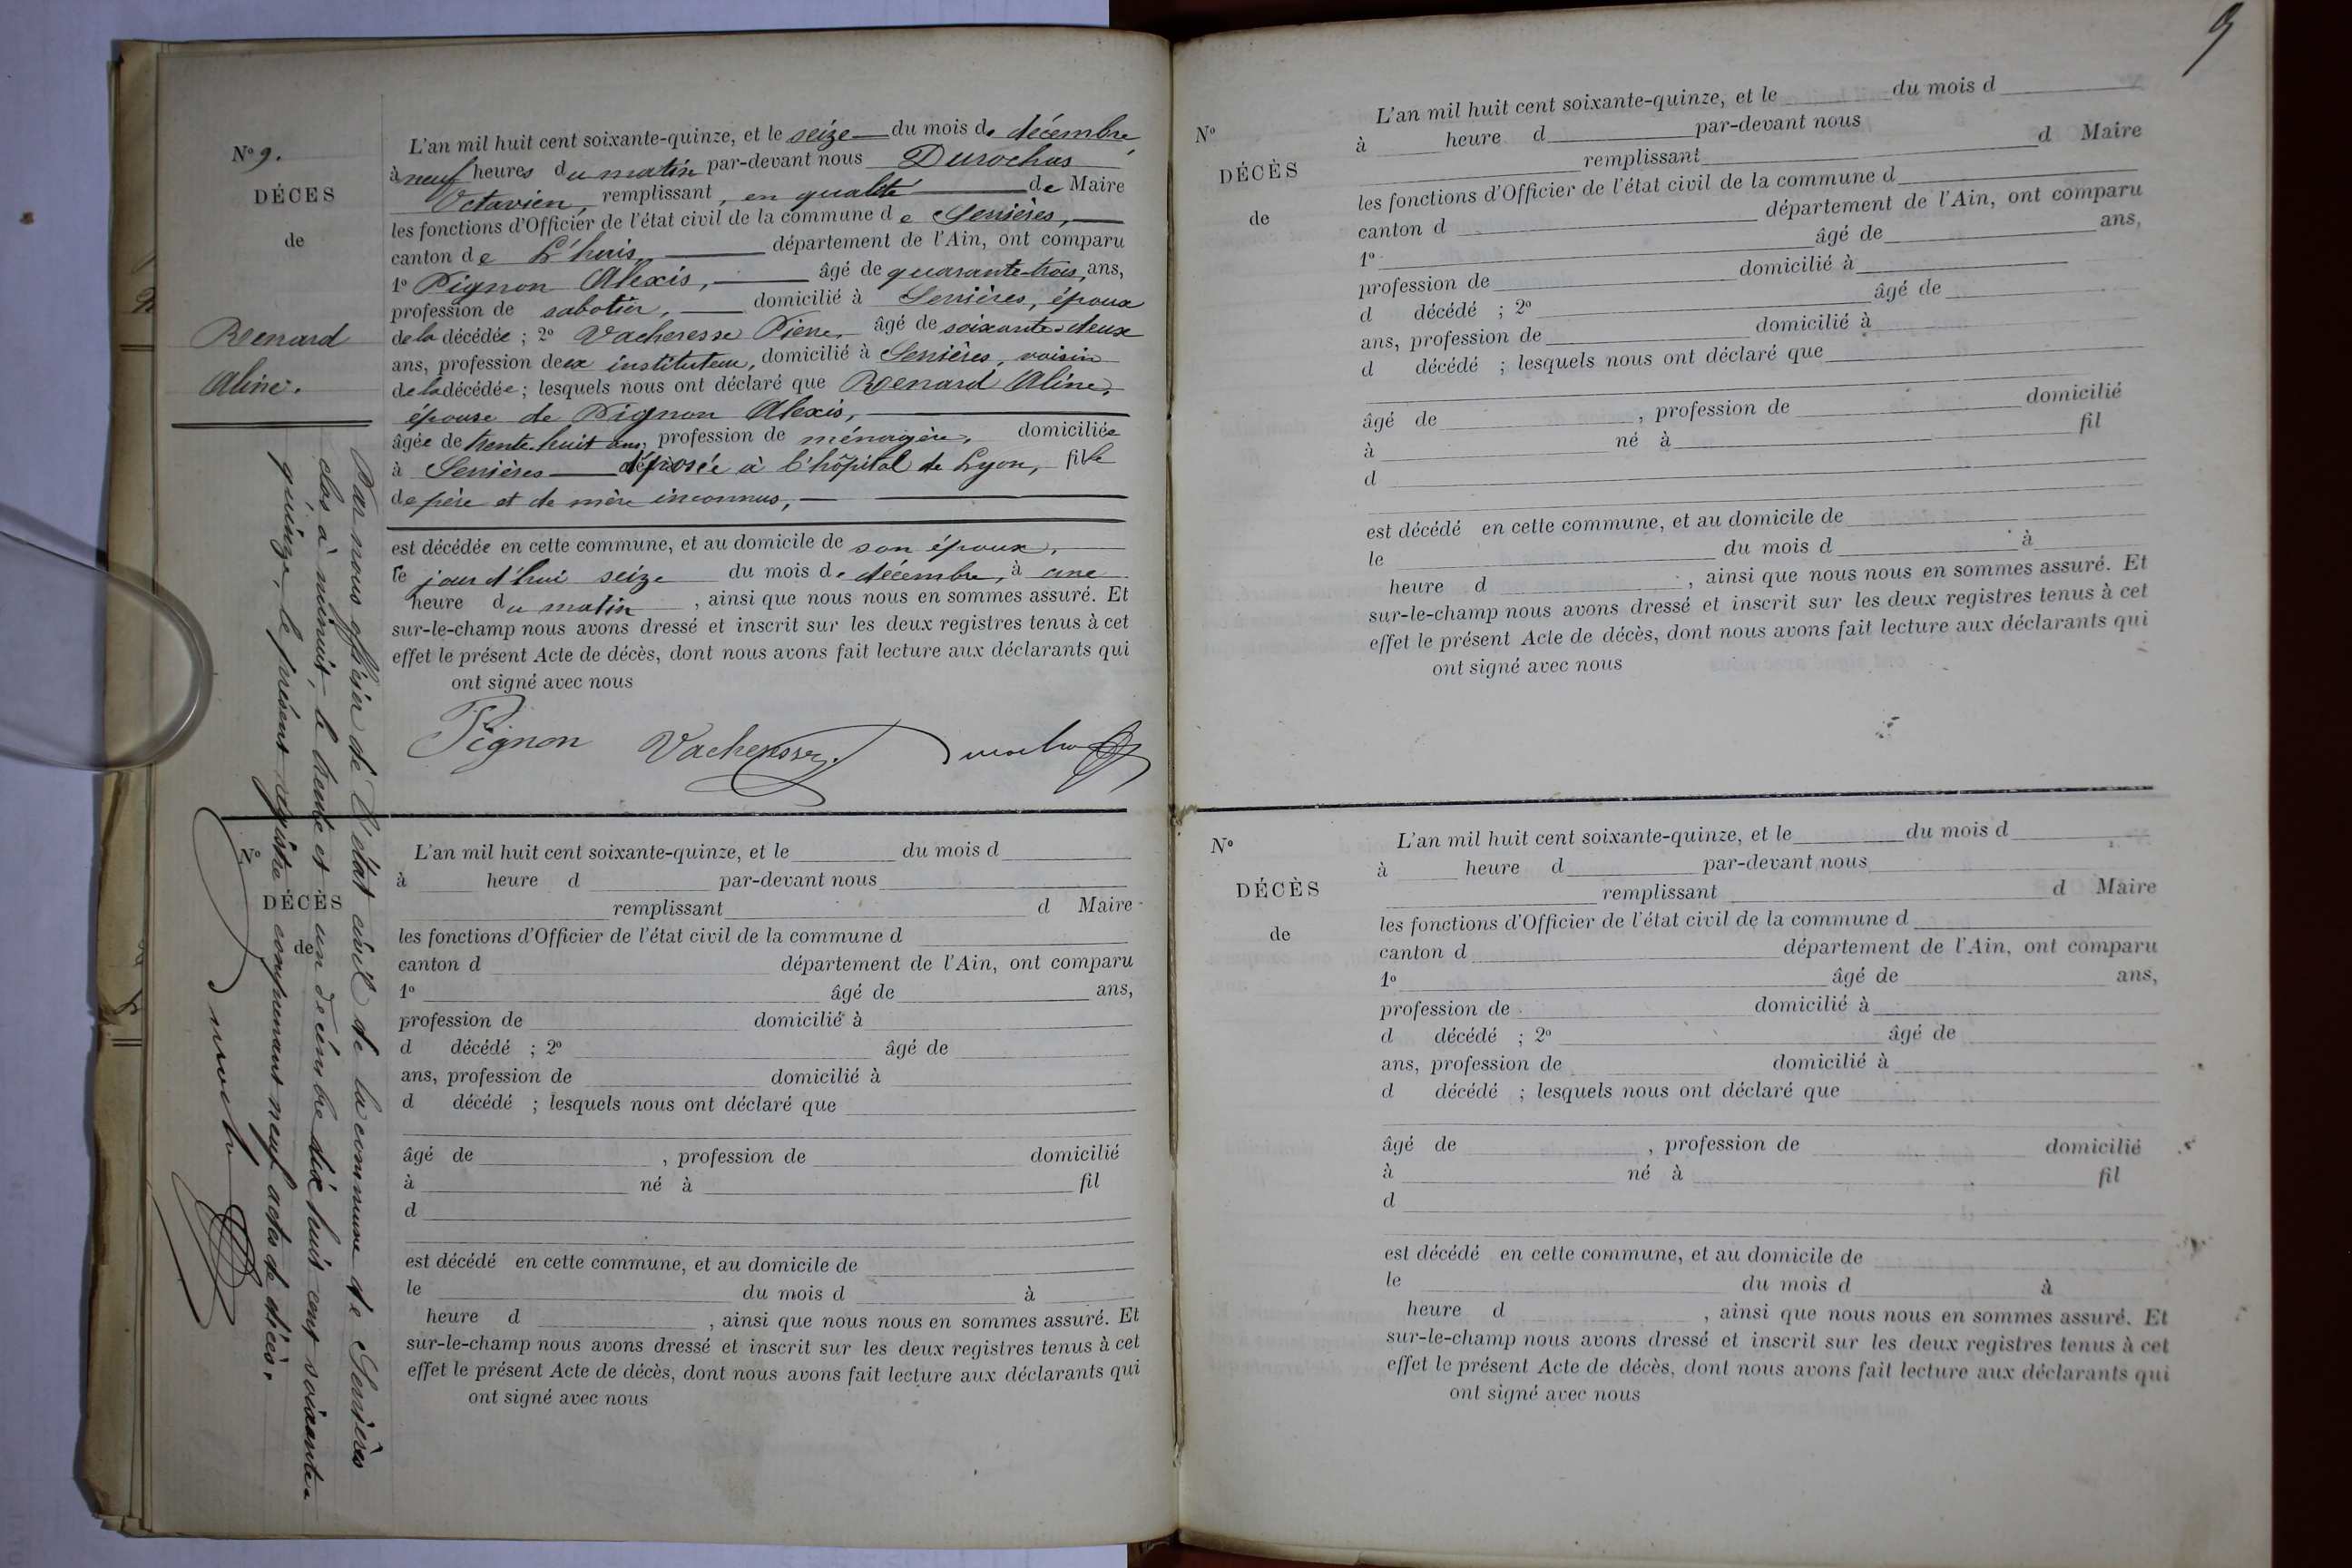 N° 9.
DÉCES
de
Renard
Aline.
L'an mil huit cent soixante-quinze, et le seize du mois de décembre,
à neuf heures du matin par-devant nous Durochas
Octavien, remplissant, en qualité de Maire
les fonctions d'Officier de l'état civil de la commune de Serrières,
canton de L'huis, département de l'Ain, ont comparu
1° Pignon Alexis, âgé de quarante-trois, ans,
profession de sabotier, domicilié à Serrières, époux
de la décédée ; 2° Vacheresse Pierre, âgé de soixante-deux
ans, profession de ex instituteur, domicilié à Serrières, voisin
de la décédée ; lesquels nous ont déclaré que Renard Aline,
épouse de Pignon Alexis,
âgée de trente huit ans, profession de ménagère, domiciliée
à Serrières déposée à l'hôpital de Lyon, fille
de père et de mère inconnus,
est décédée en cette commune, et au domicile de son époux,
le jourd'hui seize du mois de décembre, à une
heure du matin, ainsi que nous nous en sommes assuré. Et
sur-le-champ nous avons dressé et inscrit sur les deux registres tenus à cet
effet le présent Acte de décès, dont nous avons fait lecture aux déclarants qui
ont signé avec nous
Pignon Vacheresse
Par nous officier de l'état civil de la commune de Serrières
clos à minuit, le trente et un décembre dix huit cent soixante
quinze, le présent registre comprenant neuf actes de décès.
N°
DÉCÈS
de
L'an mil huit cent soixante-quinze, et le du mois d
à heure d par-devant nous
remplissant d Maire
les fonctions d'Officier de l'état civil de la commune d
canton d département de l'Ain, ont comparu
1° âgé de ans,
profession de domicilié à
d décédé ; 2° âgé de
ans, profession de domicilié à
d décédé ; lesquels nous ont déclaré que
âgé de , profession de domicilié
à né à fil
d
est décédé en cette commune, et au domicile de
le du mois d à
heure d , ainsi que nous nous en sommes assuré. Et
sur-le-champ nous avons dressé et inscrit sur les deux registres tenus à cet
effet le présent Acte de décès, dont nous avons fait lecture aux déclarants qui
ont signé avec nous
9
N°
DÉCÈS
de
L'an mil huit cent soixante-quinze, et le du mois d
à heure d par-devant nous
remplissant d Maire
les fonctions d'Officier de l'état civil de la commune d
canton d département de l'Ain, ont comparu
1° âgé de ans,
profession de domicilié à
d décédé ; 2° âgé de
ans, profession de domicilié à
d décédé ; lesquels nous ont déclaré que
âgé de , profession de domicilié
à né à fil
d
est décédé en cette commune, et au domicile de
le du mois d à
heure d , ainsi que nous nous en sommes assuré. Et
sur-le-champ nous avons dressé et inscrit sur les deux registres tenus à cet
effet le présent Acte de décès, dont nous avons fait lecture aux déclarants qui
ont signé avec nous
N°
DÉCÈS
de
L'an mil huit cent soixante-quinze, et le du mois d
à heure d par-devant nous
remplissant d Maire
les fonctions d'Officier de l'état civil de la commune d
canton d département de l'Ain, ont comparu
1° âgé de ans,
profession de domicilié à
d décédé ; 2° âgé de
ans, profession de domicilié à
d décédé ; lesquels nous ont déclaré que
âgé de , profession de domicilié
à né à fil
d
est décédé en cette commune, et au domicile de
le du mois d à
heure d , ainsi que nous nous en sommes assuré. Et
sur-le-champ nous avons dressé et inscrit sur les deux registres tenus à cet
effet le présent Acte de décès, dont nous avons fait lecture aux déclarants qui
ont signé avec nous